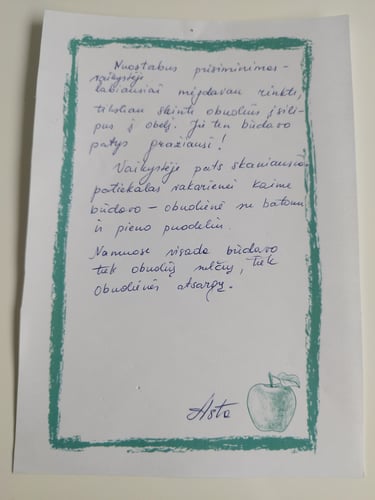 Nuostabus prisiminimas -
vaikystėje
labiausiai mėgdavau rinkti,
tiksliau skinti obuolius įsili-
pus į obelį. Jie ten būdavo
patys gražiausi!
Vaikystėje pats skaniausias
patiekalas vakarienei kaime
būdavo - obuolienė su batonu
ir pieno puodeliu.
Namuose visada būdavo
tiek obuolių sulčių, tiek
obuolienės atsargų.
Asta